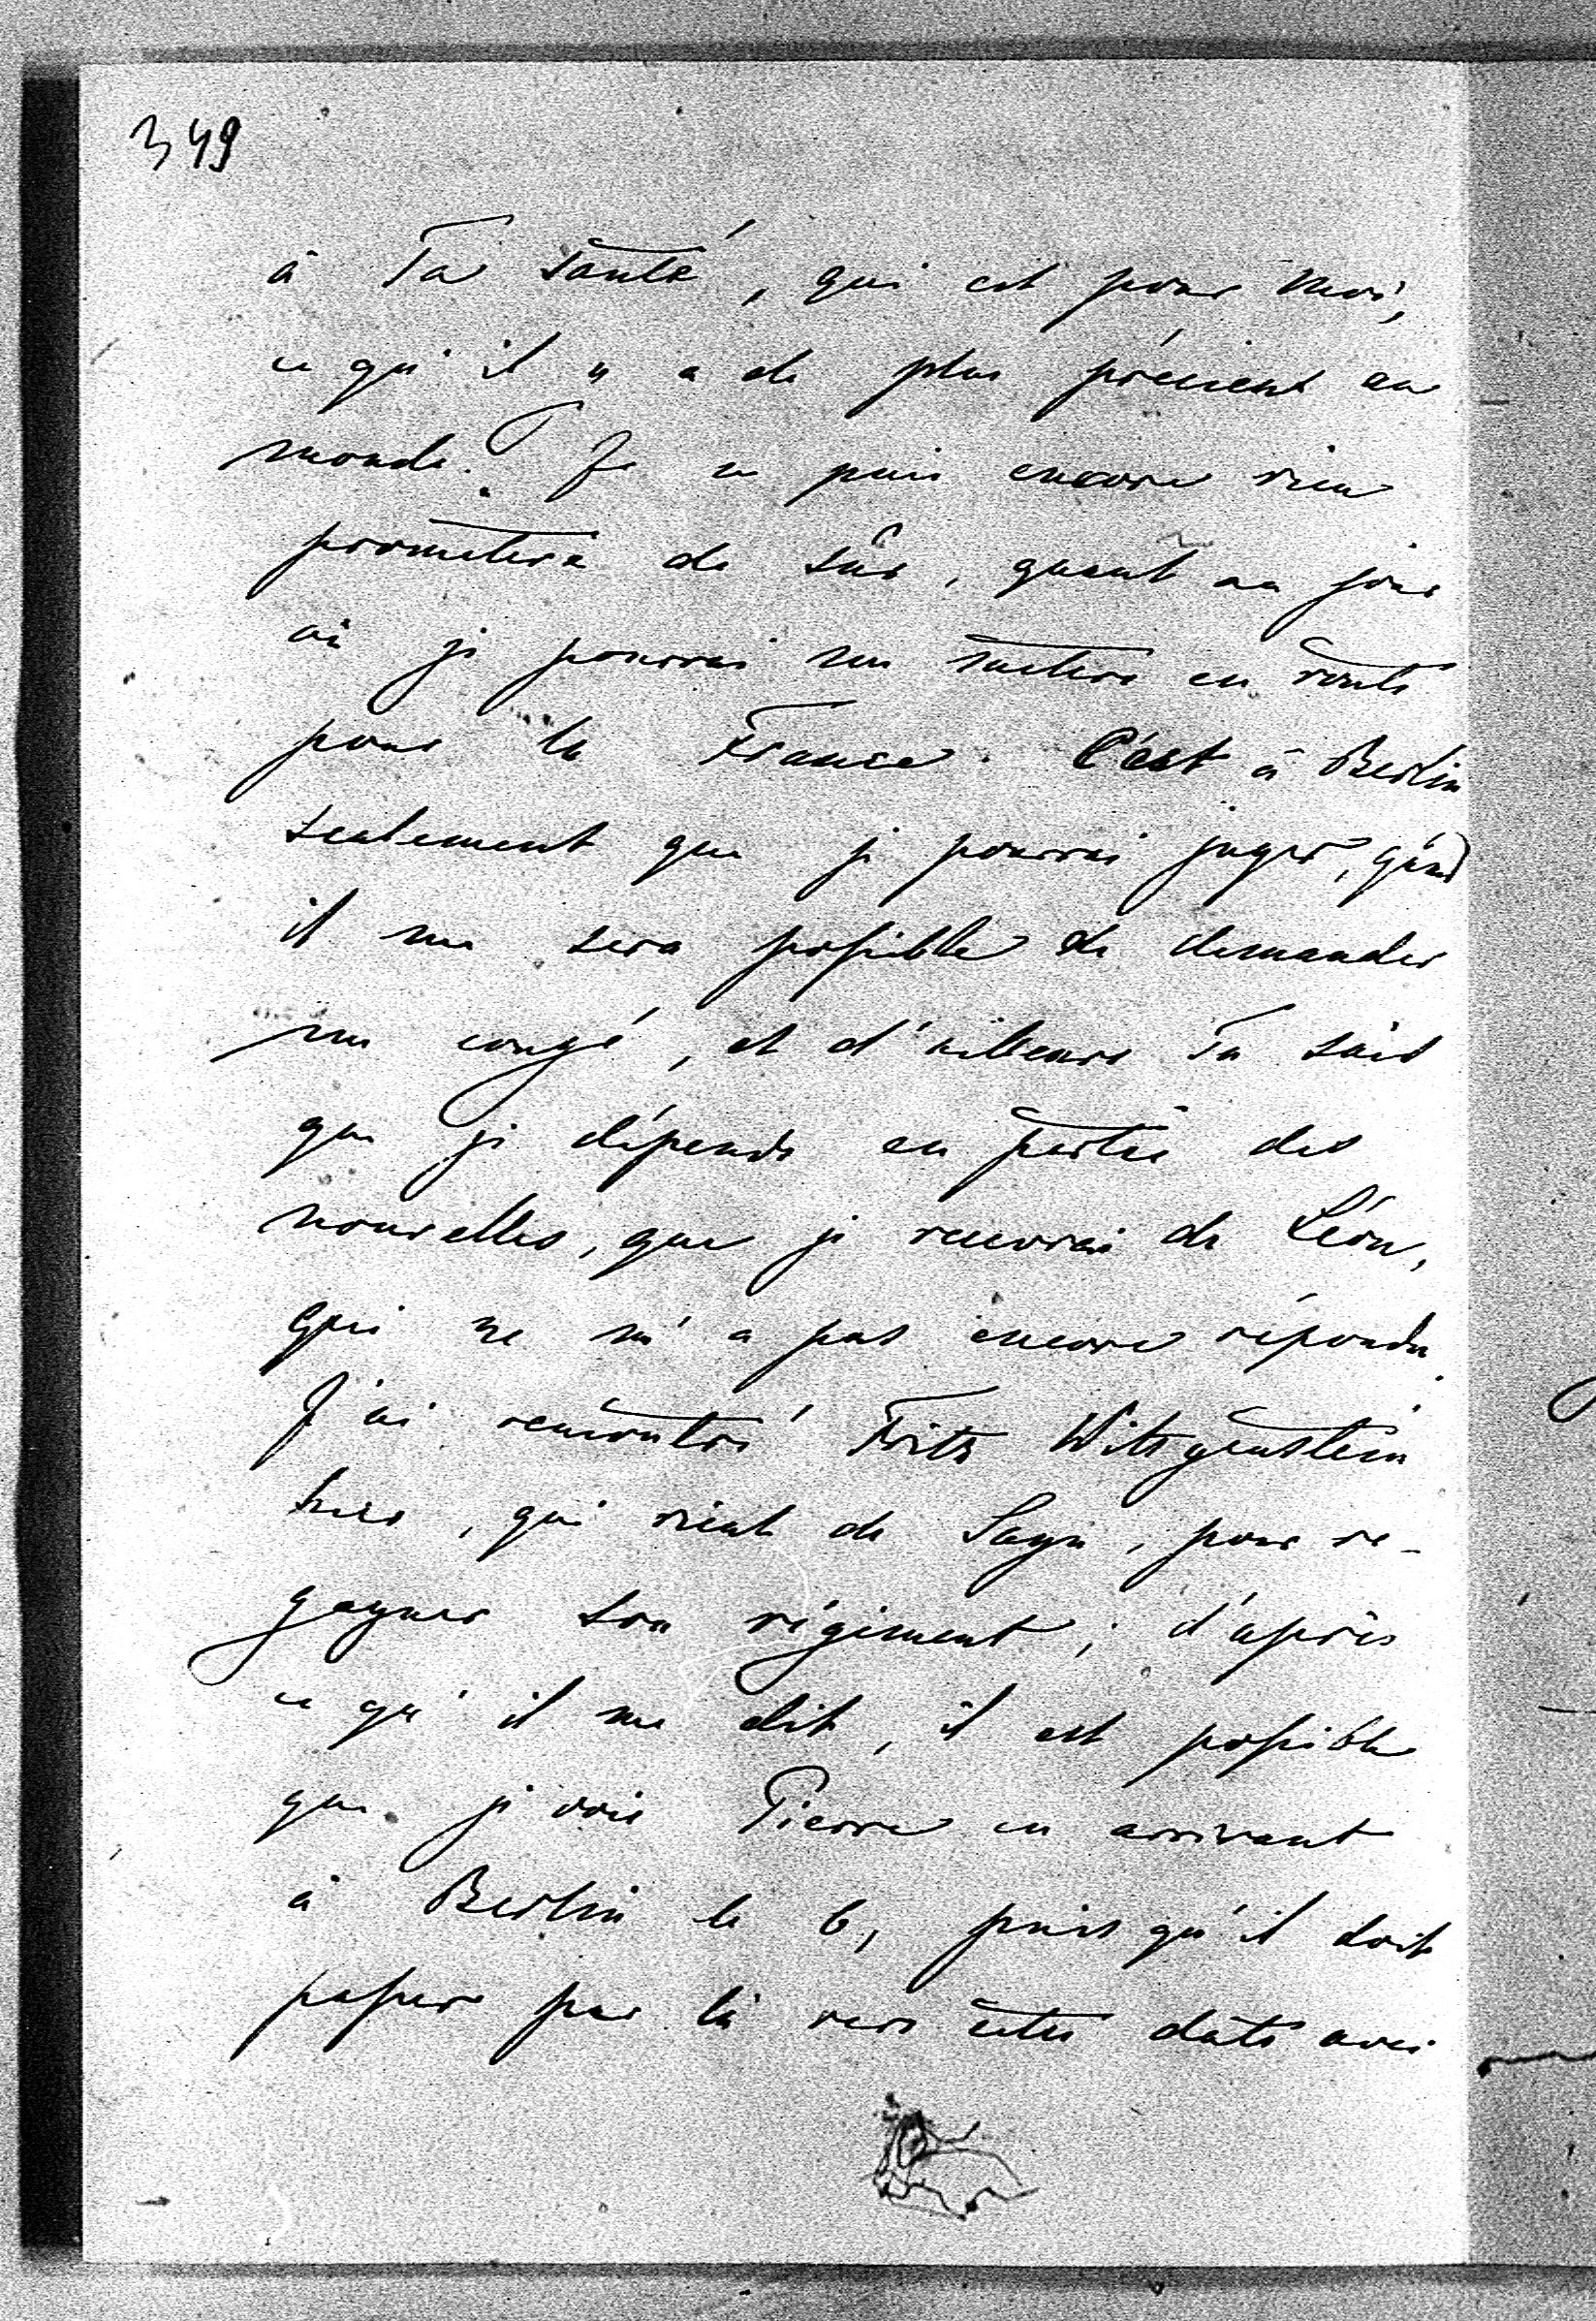 349
à Ta santé, qui est pour moi,
ce qu'il y a de plus précieux au
monde? Je ne puis encore rien
promettre de sûr, quant au jour
où je pourrai me mettre en route
pour la France. C'est à Berlin
seulement que je pourrai juger, quand
il me sera possible de demander
un congé, et d'ailleurs Tu sais
que je dépends en partie des
nouvelles, que je recevrai de Léon,
qui ne m'a pas encore répondu.
J'ai rencontré Fritz Witsgenstein
hier, qui vient de Sayn, pour re-
gagner son régiment; d'après
ce qu'il me dit, il est possible
que je voie Pierre en arrivant
à Berlin le 6, puisqu'il doit
passer par là vers cette date avec